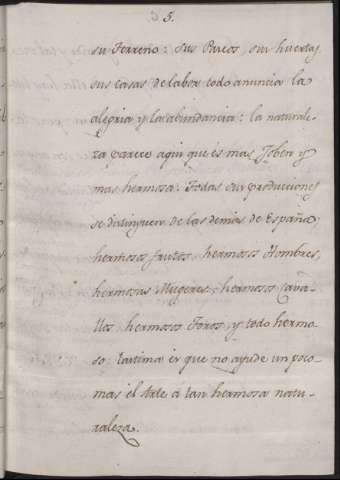 5.
su Terreno: sus Paseos, sus huertas
sus casas de labor todo anuncia la
alegria y la abundancia: la naturale-
za parece aqui que es mas Joben y
mas hermosa. Todas sus producciones
se distinguen de las demas de España,
hermosos frutos, hermosos Hombres,
hermosas Mugeres, hermosos cava-
llos, hermosos Toros, y todo hermo-
so: lastima es que no ayude un poco
mas el Arte à tan hermosa natu-
raleza.